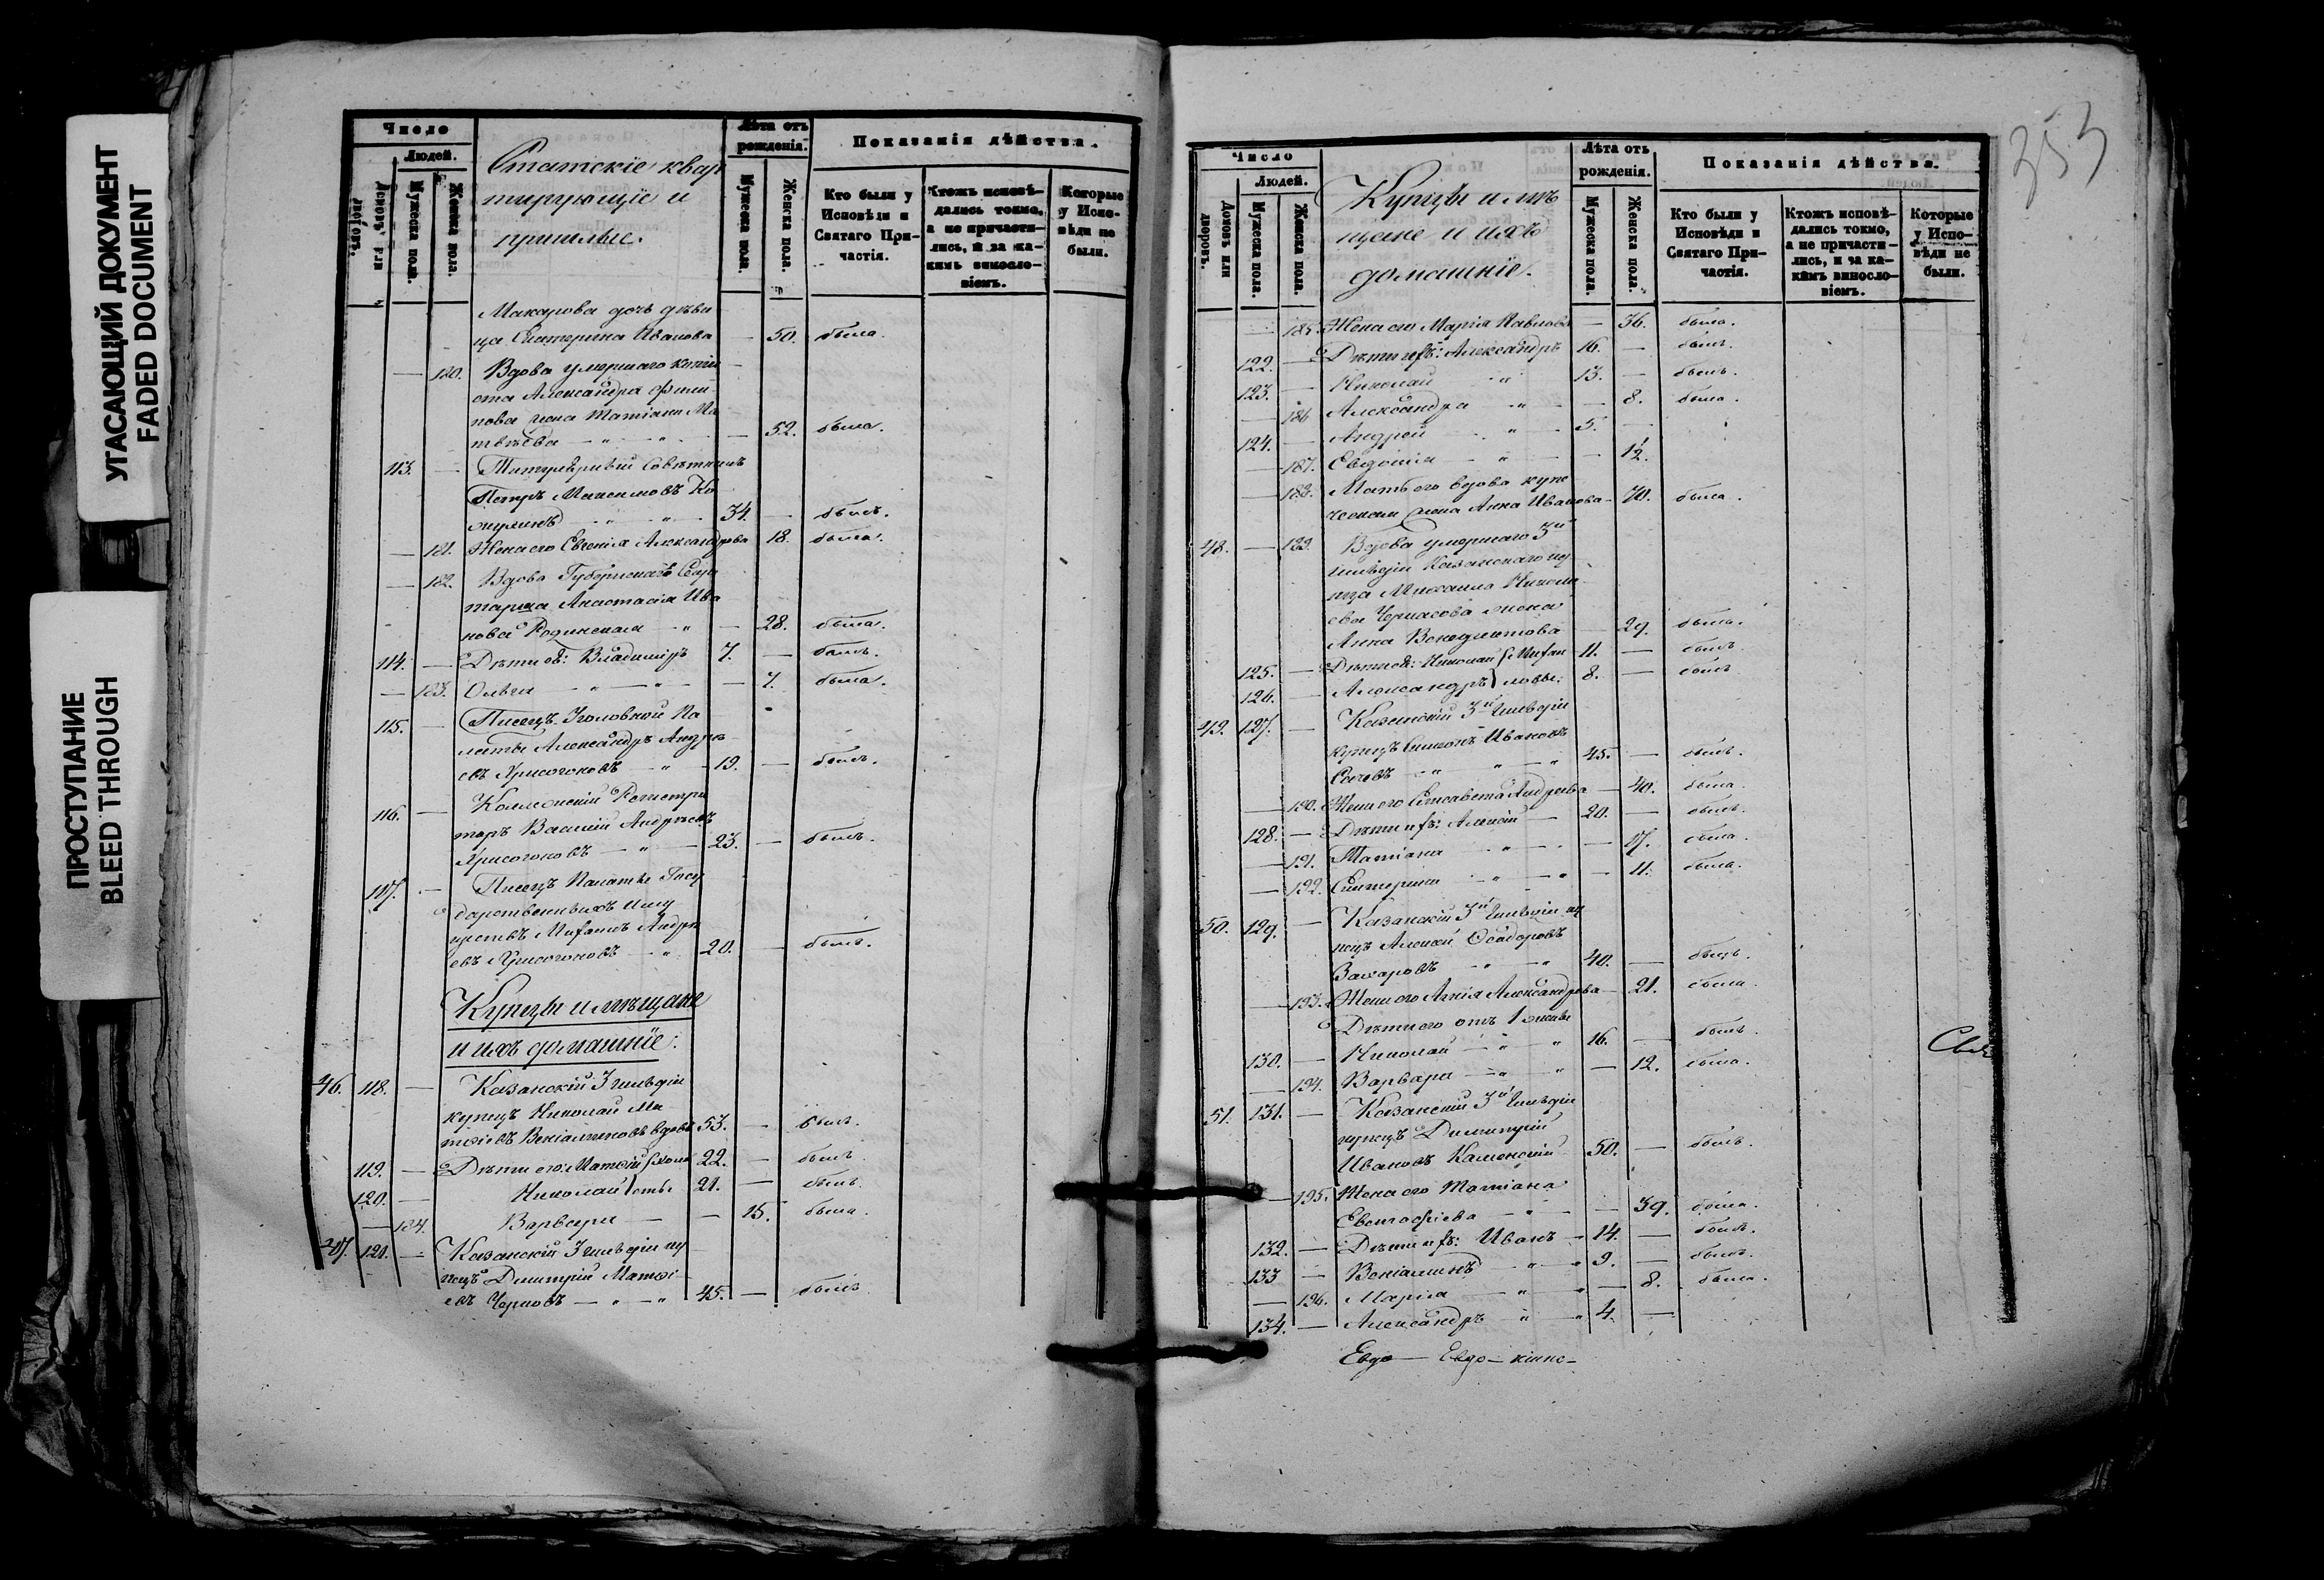 УГАСАЮЩИЙ ДОКУМЕНТ
FADED DOCUMENT
ПРОСТУПАНИЕ
BLEED THROUGH
Число
Людей.
Домовъ или дворовъ.
Мужеска пола.
Женска пола.
Статскіе квар
тирующіе и
пришлые.
Лѣта отъ
рожденія.
Мужеска пола.
Женска пола.
Показанія дѣйства.
Кто были у
Исповѣди и
Святаго При-
частія.
Ктожъ исповѣ-
дались токмо,
а не причасти-
лись, и за ка-
кимъ винosло-
віемъ.
Которые
у Испо-
вѣди не
были.
Макарова дочь дѣви
ца Екатерина Иванова — 50. была.
— 180. Вдова умершаго копіи
ста Александра Филип
пова жена Татіана Ма
твѣева — " — 52. была.
113. — Титулярный Совѣтникъ
Петръ Максимовъ Ко
" 34. — былъ.
— 181. Жена его Евгенія Александрова 18. была.
— 182. Вдова Губернскаго Секре
таря Анастасія Ива
нова — " — 28. была.
114. — Дѣти ея: Владиміръ 7. — былъ.
— 183. Ольга — " — " — 7. была.
115. — Писецъ Уголовной Па
латы Александръ Андре
евъ Хрисогоновъ — " — 19. — былъ.
116. — Коллежскій Регистра
торъ Василій Андреевъ
Хрисогоновъ — " — 23. — былъ.
117. — Писецъ Палаты Госу
дарственныхъ Иму
ществъ Михаилъ Андре
евъ Хрисогоновъ — " 20. — былъ.
Купцы и мѣщане
и ихъ домашніе.
46. 118. — Казанскій 3 гильдіи
купецъ Николай Ма
тѳіевъ Веніаминовъ вдовъ 53. — былъ.
119. — Дѣти его: Матѳій холо 22. — былъ.
120. — Николай стые 21. — былъ.
— 184. Варвара — — 15. была.
47. 121. — Казанскій 3 гильдіи ку
пецъ Димитрій Матѳі
евъ Черновъ — " — " 45. — былъ.
353
Число
Людей.
Домовъ или дворовъ.
Мужеска пола.
Женска пола.
Купцы и мѣ
щане и ихъ
домашніе.
Лѣта отъ
рожденія.
Мужеска пола.
Женска пола.
Показанія дѣйства.
Кто были у
Исповѣди и
Святаго При-
частія.
Ктожъ исповѣ-
дались токмо,
а не причасти-
лись, и за ка-
кимъ винosло-
віемъ.
Которые
у Испо-
вѣди не
были.
185. Жена его Марія Павлова — 36. была.
122. — Дѣти ихъ: Александръ 16. — былъ.
123. — Николай " 13. — былъ.
— 186 Александра — " — 8. была.
124. — Андрей — " — 5. —
— 187. Евдокія — " — 12.
— 188. Мать его вдова купе
ческая жена Анна Иванова — 70. была.
48. — 189. Вдова умершаго 3й
гильдіи Казанскаго ку
пца Михаила Никола
ева жена
Анна Венедиктова — 29. была.
125. — Дѣти ея: Николай Михаи 11. — былъ
126. — Александръ ловы. 8. — былъ
49. 127. — Казанскій 3й гильдіи
купецъ Симеонъ Ивановъ
— " — " 45. — былъ.
— 190. Жена его Елисавета Андреева — 40. была.
128. — Дѣти ихъ: Алексій — 20. — былъ.
— 191. Татіана — " — 17. была.
— 192. Екатерина — " — " — 11. была.
50. 129. — Казанскій 3й гильдіи ку
пецъ Алексій Ѳеодоровъ
Захаровъ — " — " 40. — былъ.
— 193. Жена его Агнія Александрова — 21. была.
Дѣти его отъ 1 жены
130. — Николай — " — " 16. — былъ.
— 194. Варвара — " — " — 12. была.
51. 131. — Казанскій 3й гильдіи
купецъ Димитрій
Ивановъ Каменскій 50. — былъ.
— 195. Жена его Татіана
Евстафіева — " — 39. была.
132. — Дѣти ихъ: Иванъ — 14. — былъ.
133 — Веніаминъ — " — " 9. — былъ.
— 196. Марія — " — " — 8. была.
134. — Александръ " — " 4. —